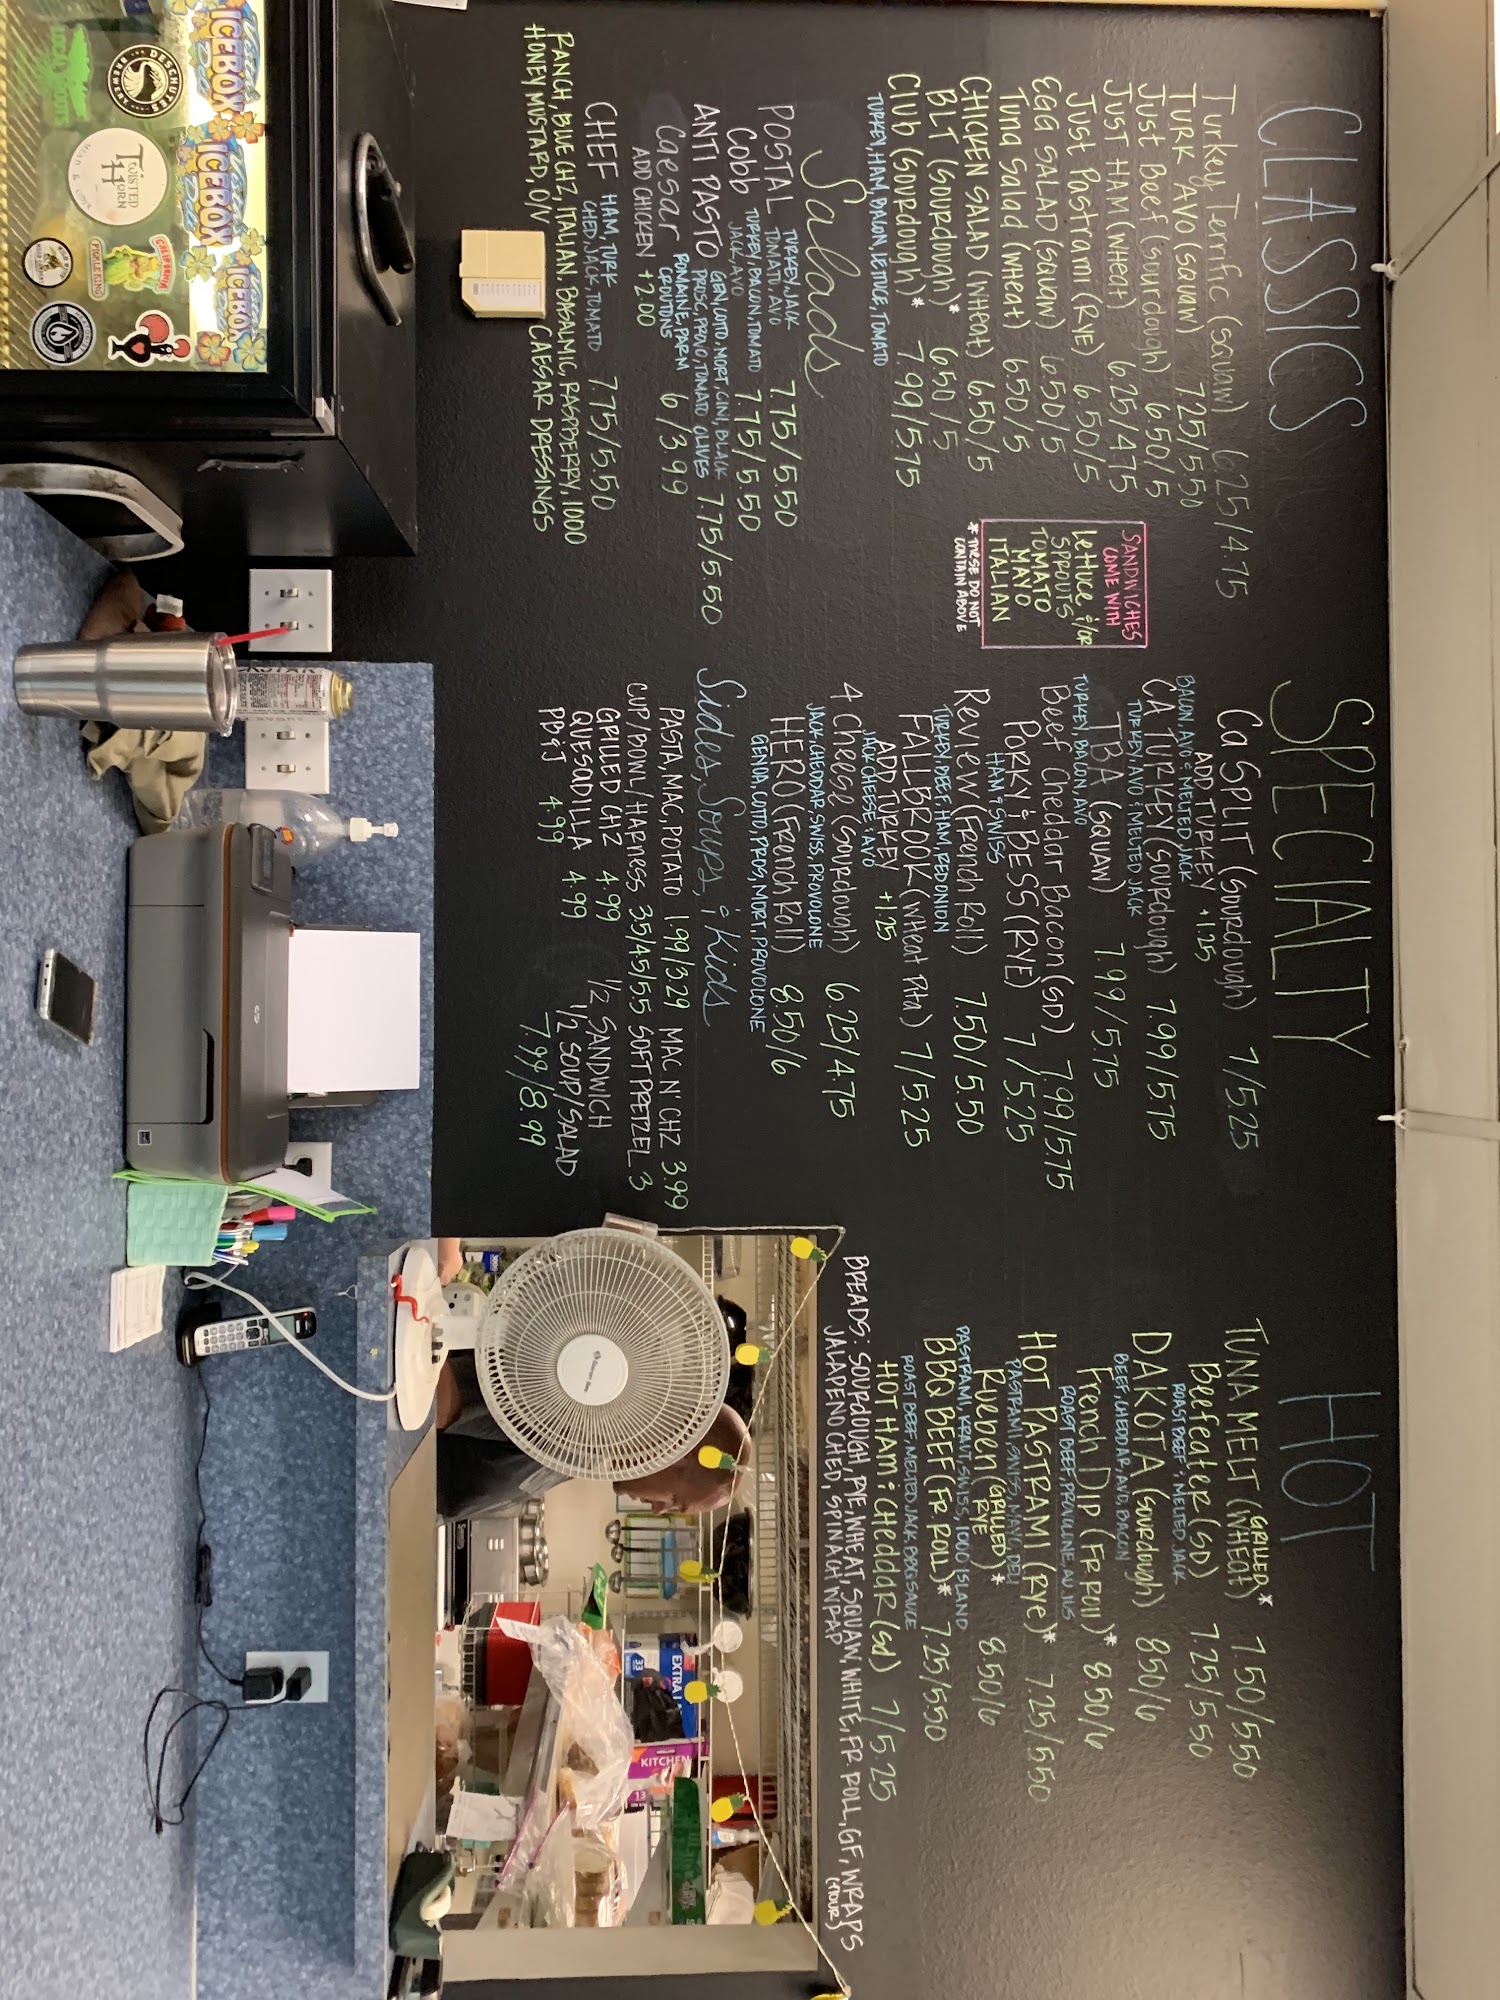 CLASSICS
Turkey Terrific (squaw) 6.25/4.75
TURK AVO (squaw) 7.25/5.50
Just Beef (sourdough) 6.50/5
JUST HAM (WHEAT) 6.25/4.75
Just Pastrami (RYE) 6.50/5
EGG SALAD (squaw) 6.50/5
Tuna Salad (wheat) 6.50/5
CHICKEN SALAD (WHEAT) 6.50/5
BLT (Sourdough)* 6.50/5
Club (Sourdough)* 7.99/5.75
TURKEY, HAM, BACON, LETTUCE, TOMATO
SANDWICHES
COME WITH
Lettuce &/OR
SPROUTS
TOMATO
MAYO
ITALIAN
* THESE DO NOT
CONTAIN ABOVE
Salads
POSTAL TURKEY, JACK
TOMATO, AVO 7.75/5.50
Cobb TURKEY, BACON, TOMATO
JACK, AVO 7.75/5.50
ANTI PASTO GEN, COTTO, MORT, CINI, BLACK
PROSC, PROVO, TOMATO OLIVES 7.75/5.50
Caesar ROMAINE, PARM
CROUTONS 6/3.99
ADD CHICKEN +2.00
CHEF HAM, TURK
CHED, JACK, TOMATO 7.75/5.50
RANCH, BLUE CHZ, ITALIAN, BASALMIC, RASPBERRY, 1000
HONEY MUSTARD, O/V CAESAR DRESSINGS
SPECIALTY
Ca SPLIT (Sourdough) 7/5.25
ADD TURKEY +1.25
BACON, AVO & MELTED JACK
CA TURKEY (Sourdough) 7.99/5.75
TURKEY, AVO & MELTED JACK
TBA (SQUAW) 7.99/5.75
TURKEY, BACON, AVO
Beef Cheddar Bacon (SD) 7.99/5.75
PORKY & BESS (RYE) 7/5.25
HAM & SWISS
Review (French Roll) 7.50/5.50
TURKEY, BEEF, HAM, RED ONION
FALLBROOK (WHEAT Pita) 7/5.25
ADD TURKEY +1.25
JACK CHEESE & AVO
4 Cheese (Sourdough) 6.25/4.75
JACK, CHEDDAR, SWISS, PROVOLONE
HERO (French Roll) 8.50/6
GENOA, COTTO, PROS, MORT, PROVOLONE
Sides, Soups, & Kids
PASTA, MAC, POTATO 1.99/3.29 MAC N' CHZ 3.99
CUP/BOWL/HARNESS 3.5/4.5/5.5 SOFT PRETZEL 3
GRILLED CHZ 4.99 1/2 SANDWICH
QUESADILLA 4.99 1/2 SOUP/SALAD
PB & J 4.99 7.99/8.99
HOT
TUNA MELT (GRILLED WHEAT)* 7.50/5.50
Beefeater (SD) 7.25/5.50
ROAST BEEF & MELTED JACK
DAKOTA (sourdough) 8.50/6
BEEF, CHEDDAR, AVO, BACON
French Dip (FR ROll)* 8.50/6
ROAST BEEF, PROVOLONE, AU JUS
HOT PASTRAMI (RYE)* 7.25/5.50
PASTRAMI, SWISS, MAYO, DELI
Rueben (GRILLED RYE)* 8.50/6
PASTRAMI, KRAUT, SWISS, 1000 ISLAND
BBQ BEEF (FR ROLL)* 7.25/5.50
ROAST BEEF, MELTED JACK, BBQ SAUCE
HOT HAM & CHEDDAR (sd) 7/5.25
BREADS: SOURDOUGH, RYE, WHEAT, SQUAW, WHITE, FR ROLL, GF, WRAPS
(FLOUR)
JALAPENO CHED, SPINACH WRAP
ICEBOX
ICEBOX
ICEBOX
DESCHUTES
BREWERY
TWISTED
HORN
MEAD &
CALIFORNIA
PICKLE KING
EXTRA
33
KITCHEN
13
hp